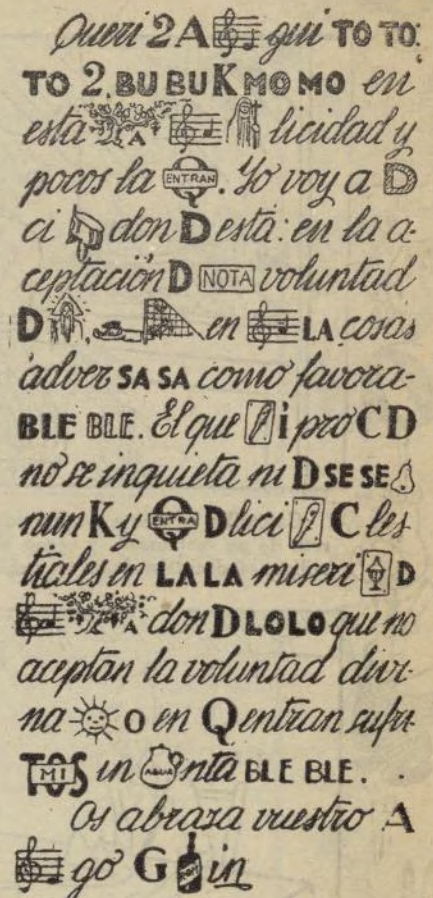 Queri 2 A gui TO TO:
TO 2. BU BU K MO MO en
esta A licidad y
pocos la Q ENTRAN. Yo voy a D
ci don D está: en la a-
ceptación D NOTA voluntad
D, en LA cosas
adver SA SA como favora-
BLE BLE. El que i pro C D
no se inquieta ni D SE SE
nun K y Q ENTRA D lici C les
tiales en LA LA miseri D
A don D LO LO que no
aceptan la voluntad divi-
na O en Q entran sufri
TOS MI in AGUA nta BLE BLE.
Os abraza vuestro A
go G in